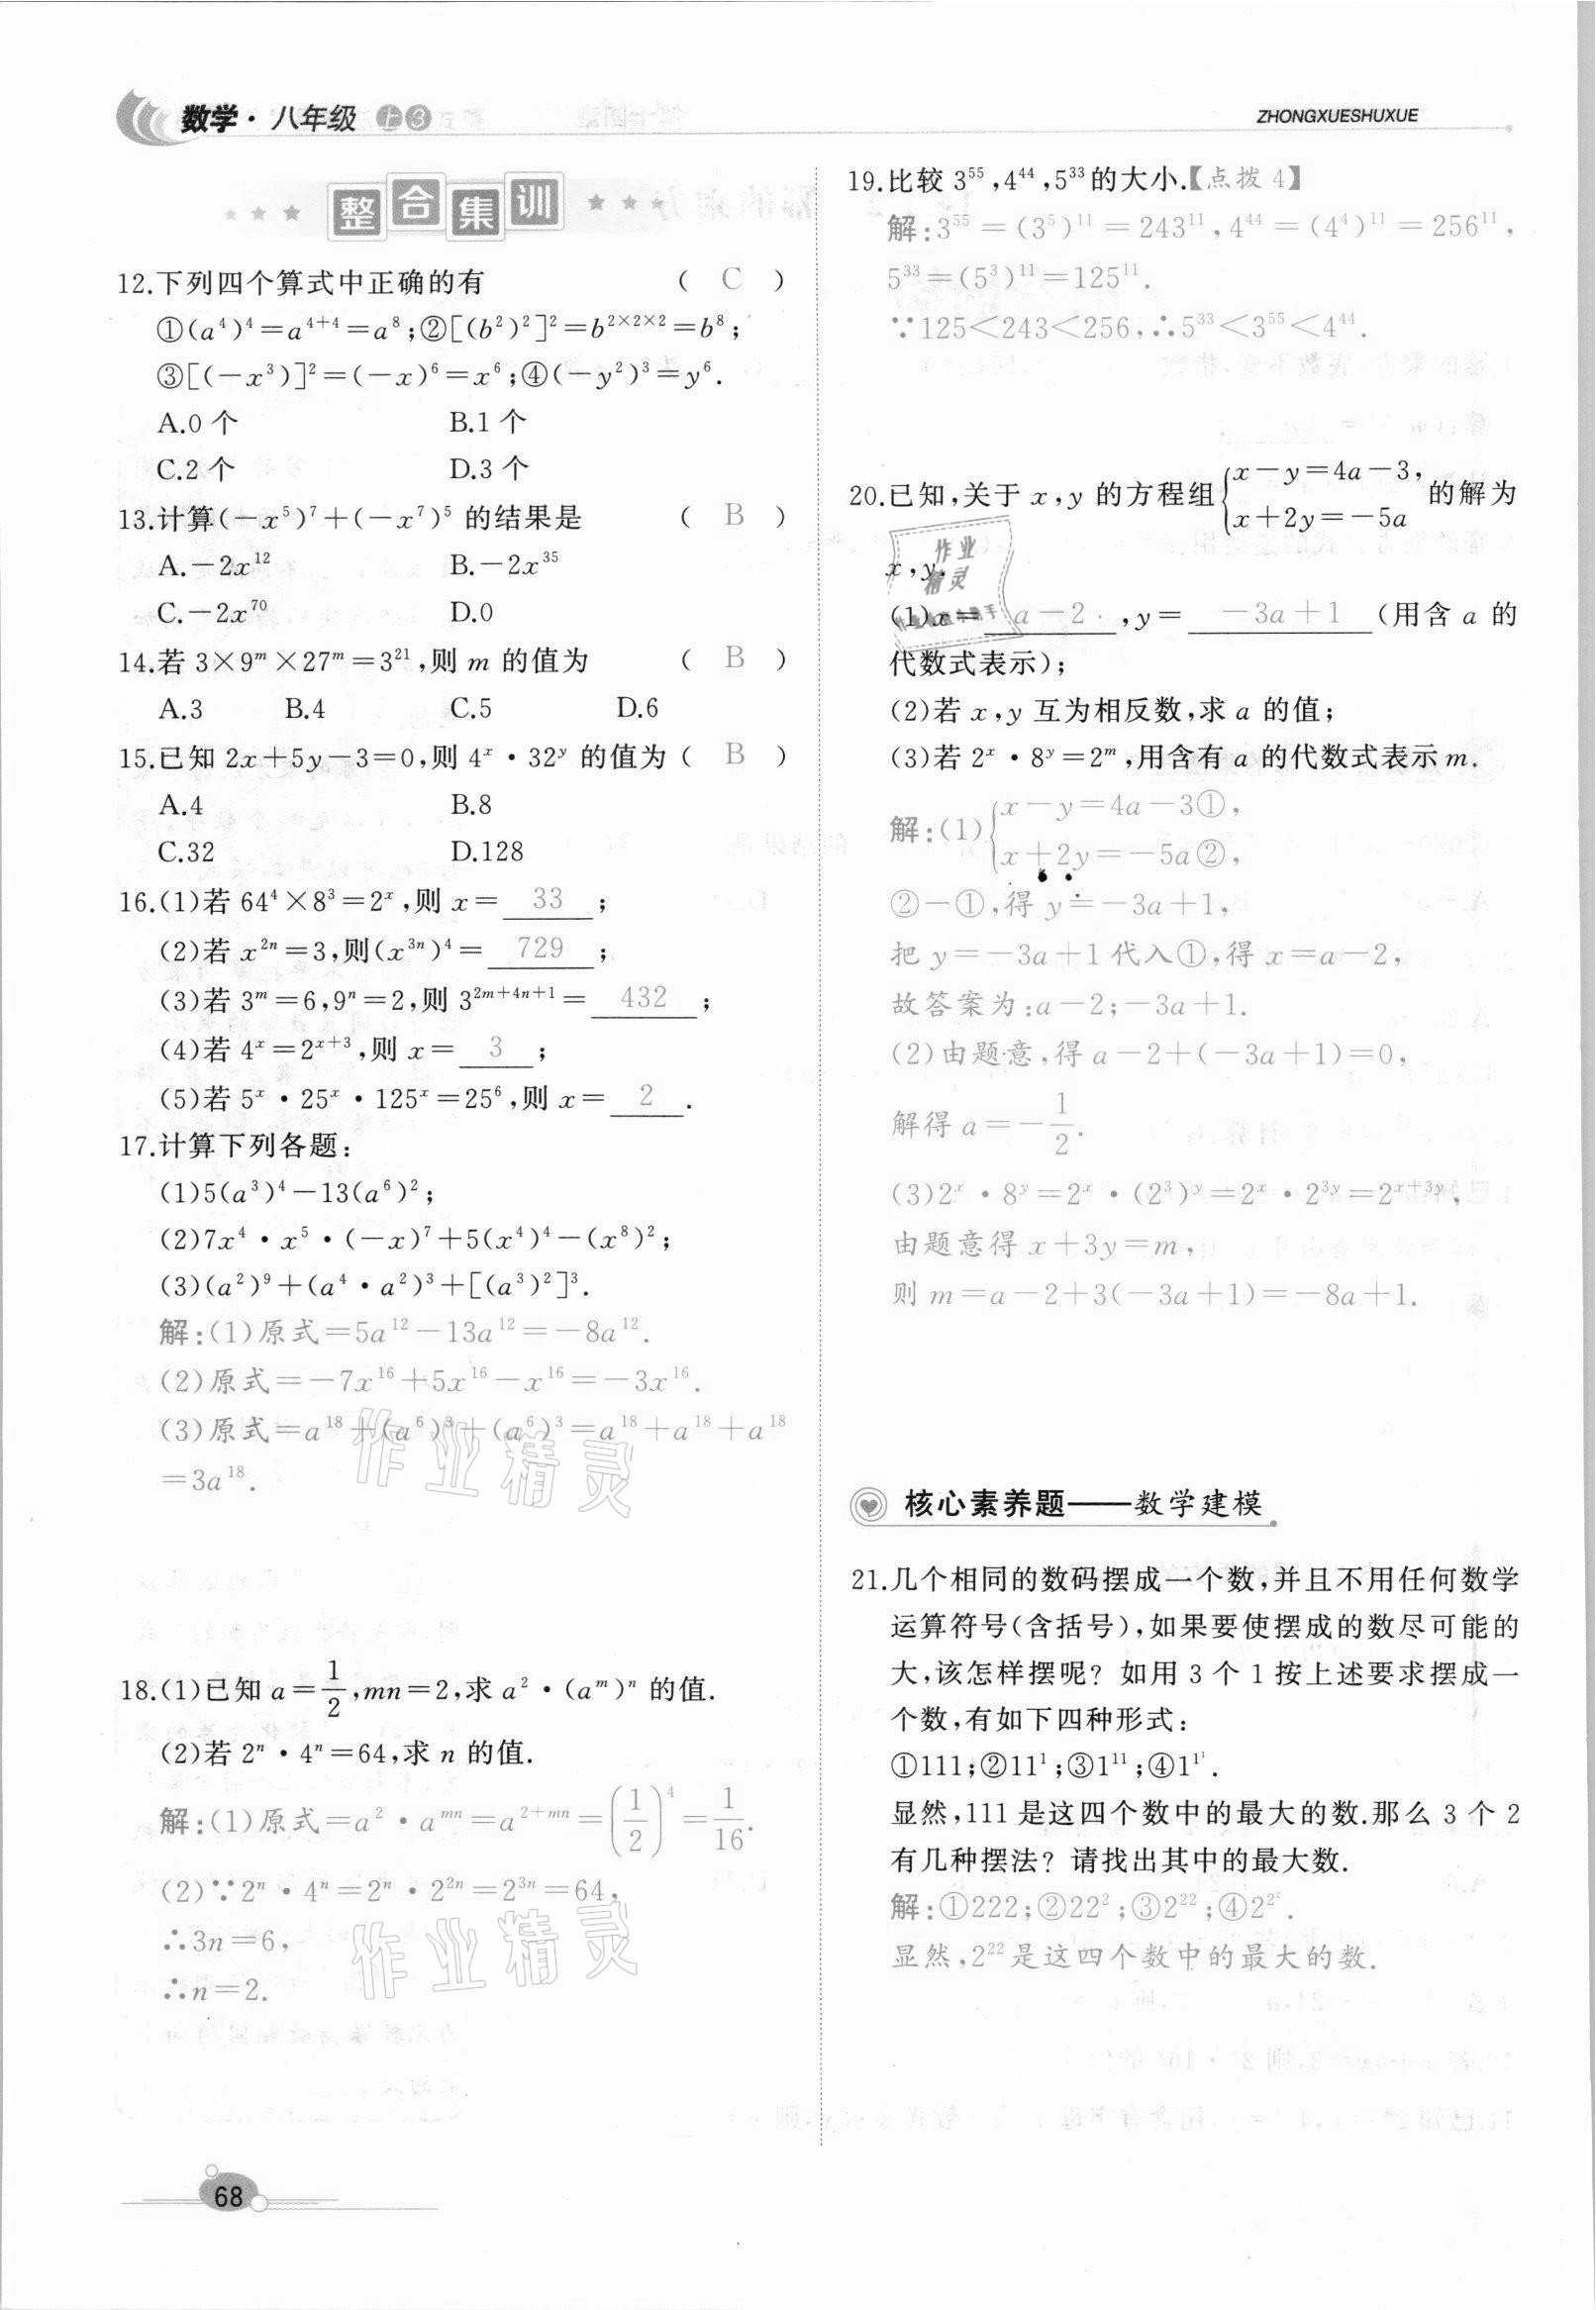 数学·八年级 上 3
ZHONGXUESHUXUE
整合集训
12.下列四个算式中正确的有 ( C )
①(a⁴)⁴=a⁴⁺⁴=a⁸;②[(b²)²]²=b²ˣ²ˣ²=b⁸;
③[(-x³)]²=(-x)⁶=x⁶;④(-y²)³=y⁶.
A.0 个 B.1 个
C.2 个 D.3 个
13.计算(-x⁵)⁷+(-x⁷)⁵ 的结果是 ( B )
A.-2x¹² B.-2x³⁵
C.-2x⁷⁰ D.0
14.若 3×9ᵐ×27ᵐ=3²¹,则 m 的值为 ( B )
A.3 B.4 C.5 D.6
15.已知 2x+5y-3=0,则 4ˣ·32ʸ 的值为( B )
A.4 B.8
C.32 D.128
16.(1)若 64⁴×8³=2ˣ,则 x= 33 ;
(2)若 x²ⁿ=3,则(x³ⁿ)⁴= 729 ;
(3)若 3ᵐ=6,9ⁿ=2,则 3²ᵐ⁺⁴ⁿ⁺¹= 432 ;
(4)若 4ˣ=2ˣ⁺³,则 x= 3 ;
(5)若 5ˣ·25ˣ·125ˣ=25⁶,则 x= 2 .
17.计算下列各题:
(1)5(a³)⁴-13(a⁶)²;
(2)7x⁴·x⁵·(-x)⁷+5(x⁴)⁴-(x⁸)²;
(3)(a²)⁹+(a⁴·a²)³+[(a³)²]³.
解:(1)原式=5a¹²-13a¹²=-8a¹².
(2)原式=-7x¹⁶+5x¹⁶-x¹⁶=-3x¹⁶.
(3)原式=a¹⁸+(a⁶)³+(a⁶)³=a¹⁸+a¹⁸+a¹⁸
=3a¹⁸.
作业精灵
18.(1)已知 a=1/2,mn=2,求 a²·(aᵐ)ⁿ 的值.
(2)若 2ⁿ·4ⁿ=64,求 n 的值.
解:(1)原式=a²·aᵐⁿ=a²⁺ᵐⁿ=(1/2)⁴=1/16.
(2)∵2ⁿ·4ⁿ=2ⁿ·2²ⁿ=2³ⁿ=64,
∴3n=6,
∴n=2.
作业精灵
68
19.比较 3⁵⁵,4⁴⁴,5³³的大小.【点拨 4】
解:3⁵⁵=(3⁵)¹¹=243¹¹,4⁴⁴=(4⁴)¹¹=256¹¹,
5³³=(5³)¹¹=125¹¹.
∵125<243<256,∴5³³<3⁵⁵<4⁴⁴.
20.已知,关于 x,y 的方程组{x-y=4a-3, x+2y=-5a 的解为
x,y.
作业
精灵
(1)x= a-2 ,y= -3a+1 (用含 a 的
代数式表示);
(2)若 x,y 互为相反数,求 a 的值;
(3)若 2ˣ·8ʸ=2ᵐ,用含有 a 的代数式表示 m.
解:(1){x-y=4a-3①, x+2y=-5a②,
②-①,得 y=-3a+1,
把 y=-3a+1 代入①,得 x=a-2,
故答案为:a-2;-3a+1.
(2)由题意,得 a-2+(-3a+1)=0,
解得 a=-1/2.
(3)2ˣ·8ʸ=2ˣ·(2³)ʸ=2ˣ·2³ʸ=2ˣ⁺³ʸ,
由题意得 x+3y=m,
则 m=a-2+3(-3a+1)=-8a+1.
核心素养题——数学建模
21.几个相同的数码摆成一个数,并且不用任何数学
运算符号(含括号),如果要使摆成的数尽可能的
大,该怎样摆呢? 如用 3 个 1 按上述要求摆成一
个数,有如下四种形式:
①111;②11¹;③1¹¹;④1^(1^1).
显然,111 是这四个数中的最大的数.那么 3 个 2
有几种摆法? 请找出其中的最大数.
解:①222;②22²;③2²²;④2^(2^2).
显然,2²²是这四个数中的最大的数.